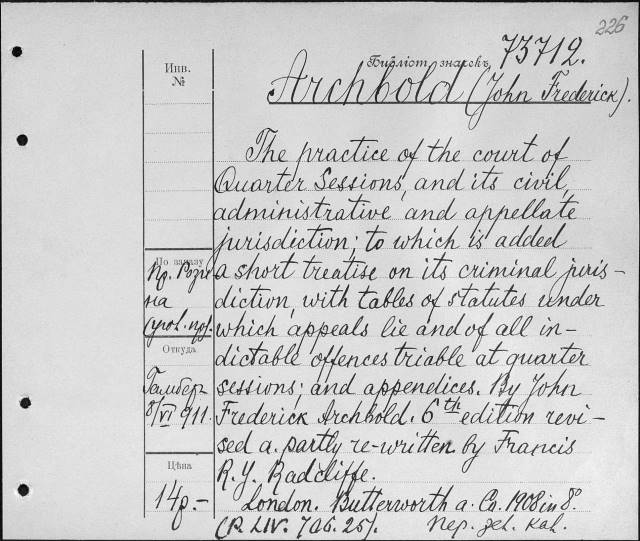 226
Библіот. знаскъ 73712.
Инв.
№
Archbold (John Frederick).
The practice of the court of
Quarter Sessions, and its civil,
administrative and appellate
jurisdiction; to which is added
По заказу
a short treatise on its criminal juris-
diction, with tables of statutes under
which appeals lie and of all in-
Откуда
dictable offences triable at quarter
sessions; and appendices. By John
8/VI 911.
Frederick Archbold. 6th edition revi-
sed a. partly re-written by Francis
Цѣна
R. Y. Radcliffe.
14р.-
London. Butterworth a. Co. 1908 in 8°
(P. LIV. 706. 25).